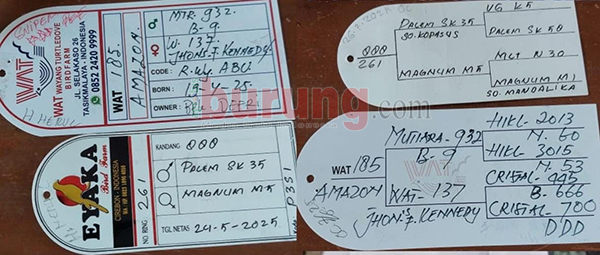 WAT
WAYANG TURTLEDOVE
BIRDFARM
JL. SELAKASO 26
TASIKMALAYA - INDONESIA
0852 2420 9999
WAT 185
AMAZON.
MTR. 932.
B-9
W. 137.
JHONS F. KENNEDY
CODE :
BORN : 19-4-25.
OWNER :
EYAKA
Bird Farm
CIREBON - INDONESIA
NO RING 261
KANDANG: QQQ
PALEM SK 35
MAGNUM M5
TGL NETAS 24-5-2025
QQQ
261
PALEM SK 35
SO. KOPASUS
MAGNUM M5
VG K5
PALEM SK 50
MGT N 30
MAGNUM M1
SO. MANDALIKA
WAT 185
AMAZON
MUTIARA-932
B-9
WAT-137
JHON'S F. KENNEDY
HIKL-2013
M. 60
HIKL-3015
M. 53
CRISTAL-995
B-666
CRISTAL-700
DDD
burung.com